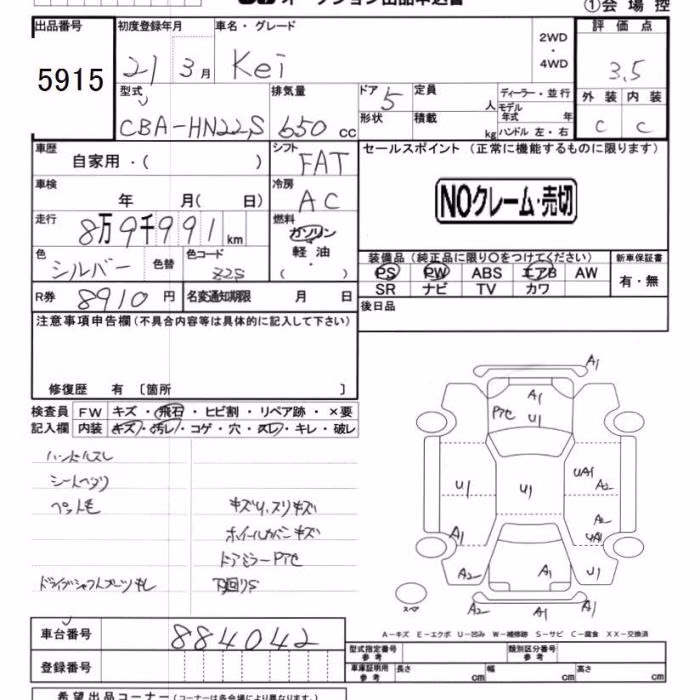 オークション出品申込書
①会場控
出品番号 初度登録年月 車名・グレード 評価点
5915 21年 3月 Kei 2WD・4WD 3.5
型式 排気量 ドア 定員 人 ディーラー・並行 外装 内装
CBA-HN22S 650cc 5 形状 積載 kg モデル年式 年 ハンドル 左・右 C C
車歴 自家用・( ) シフト FAT セールスポイント (正常に機能するものに限ります)
車検 年 月( 日) 冷房 AC NOクレーム・売切
走行 8万9千991km 燃料 ガソリン・軽油・( )
色 シルバー 色替 色コード Z2S 装備品 (純正品に限り○をつけてください) 新車保証書
PS PW ABS エアB AW 有・無
SR ナビ TV カワ
R券 8910円 名変通知期限 月 日 後日品
注意事項申告欄 (不具合内容等は具体的に記入して下さい)
修復歴 有 [箇所 ]
検査員 FW キズ・飛石・ヒビ割・リペア跡・×要
記入欄 内装 キズ・汚レ・コゲ・穴・スレ・キレ・破レ
ハンドルスレ
シートヘタリ
ペット毛 キズU、スリキズ
ホイールカバーキズ
ドアミラーPアセ
ドライブシャフトブーツキレ 下回りS
A1
A1
Pアセ U1
U1 U1 UA1 A2
A2
A1 UA1
A2 A1 U1
スペア A2 A1 A1
A-キズ E-エクボ U-凹み W-補修跡 S-サビ C-腐食 XX-交換済
車台番号 884042
型式指定番号 参考 類別区分番号 参考
登録番号 車庫証明用 参考 長さ cm 幅 cm 高さ cm
希望出品コーナー (コーナーは各会場により異なります。)